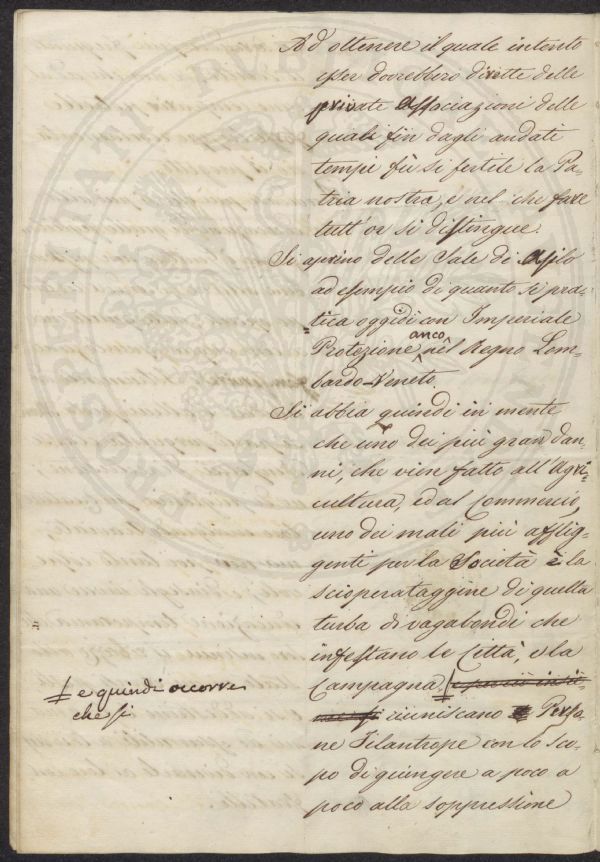 Ad ottenere il quale intento
esser dovrebbero dirette delle
private Associazioni delle
quali fin dagli andati
tempi fù si fertile la Pa-
tria nostra, e nel che fare
tutt'or si distingue.
Si aprino delle Sale di Asilo
ad esempio di quanto si pra-
tica oggidì con Imperiale
anco
Protezione nel Regno Lom-
bardo-Veneto.
Si abbia quindi in mente
che uno dei più gran dan-
ni, che vien fatto all'Agri-
cultura, ed al Commercio,
uno dei mali più afflig-
genti per la Società è la
scioperataggine di quella
turba di vagabondi che
infestano le Città, e la
Campagna,
e quindi occorre
che si
riuniscano Perso-
ne Filantrope con lo sco-
po di giungere a poco a
poco alla soppressione